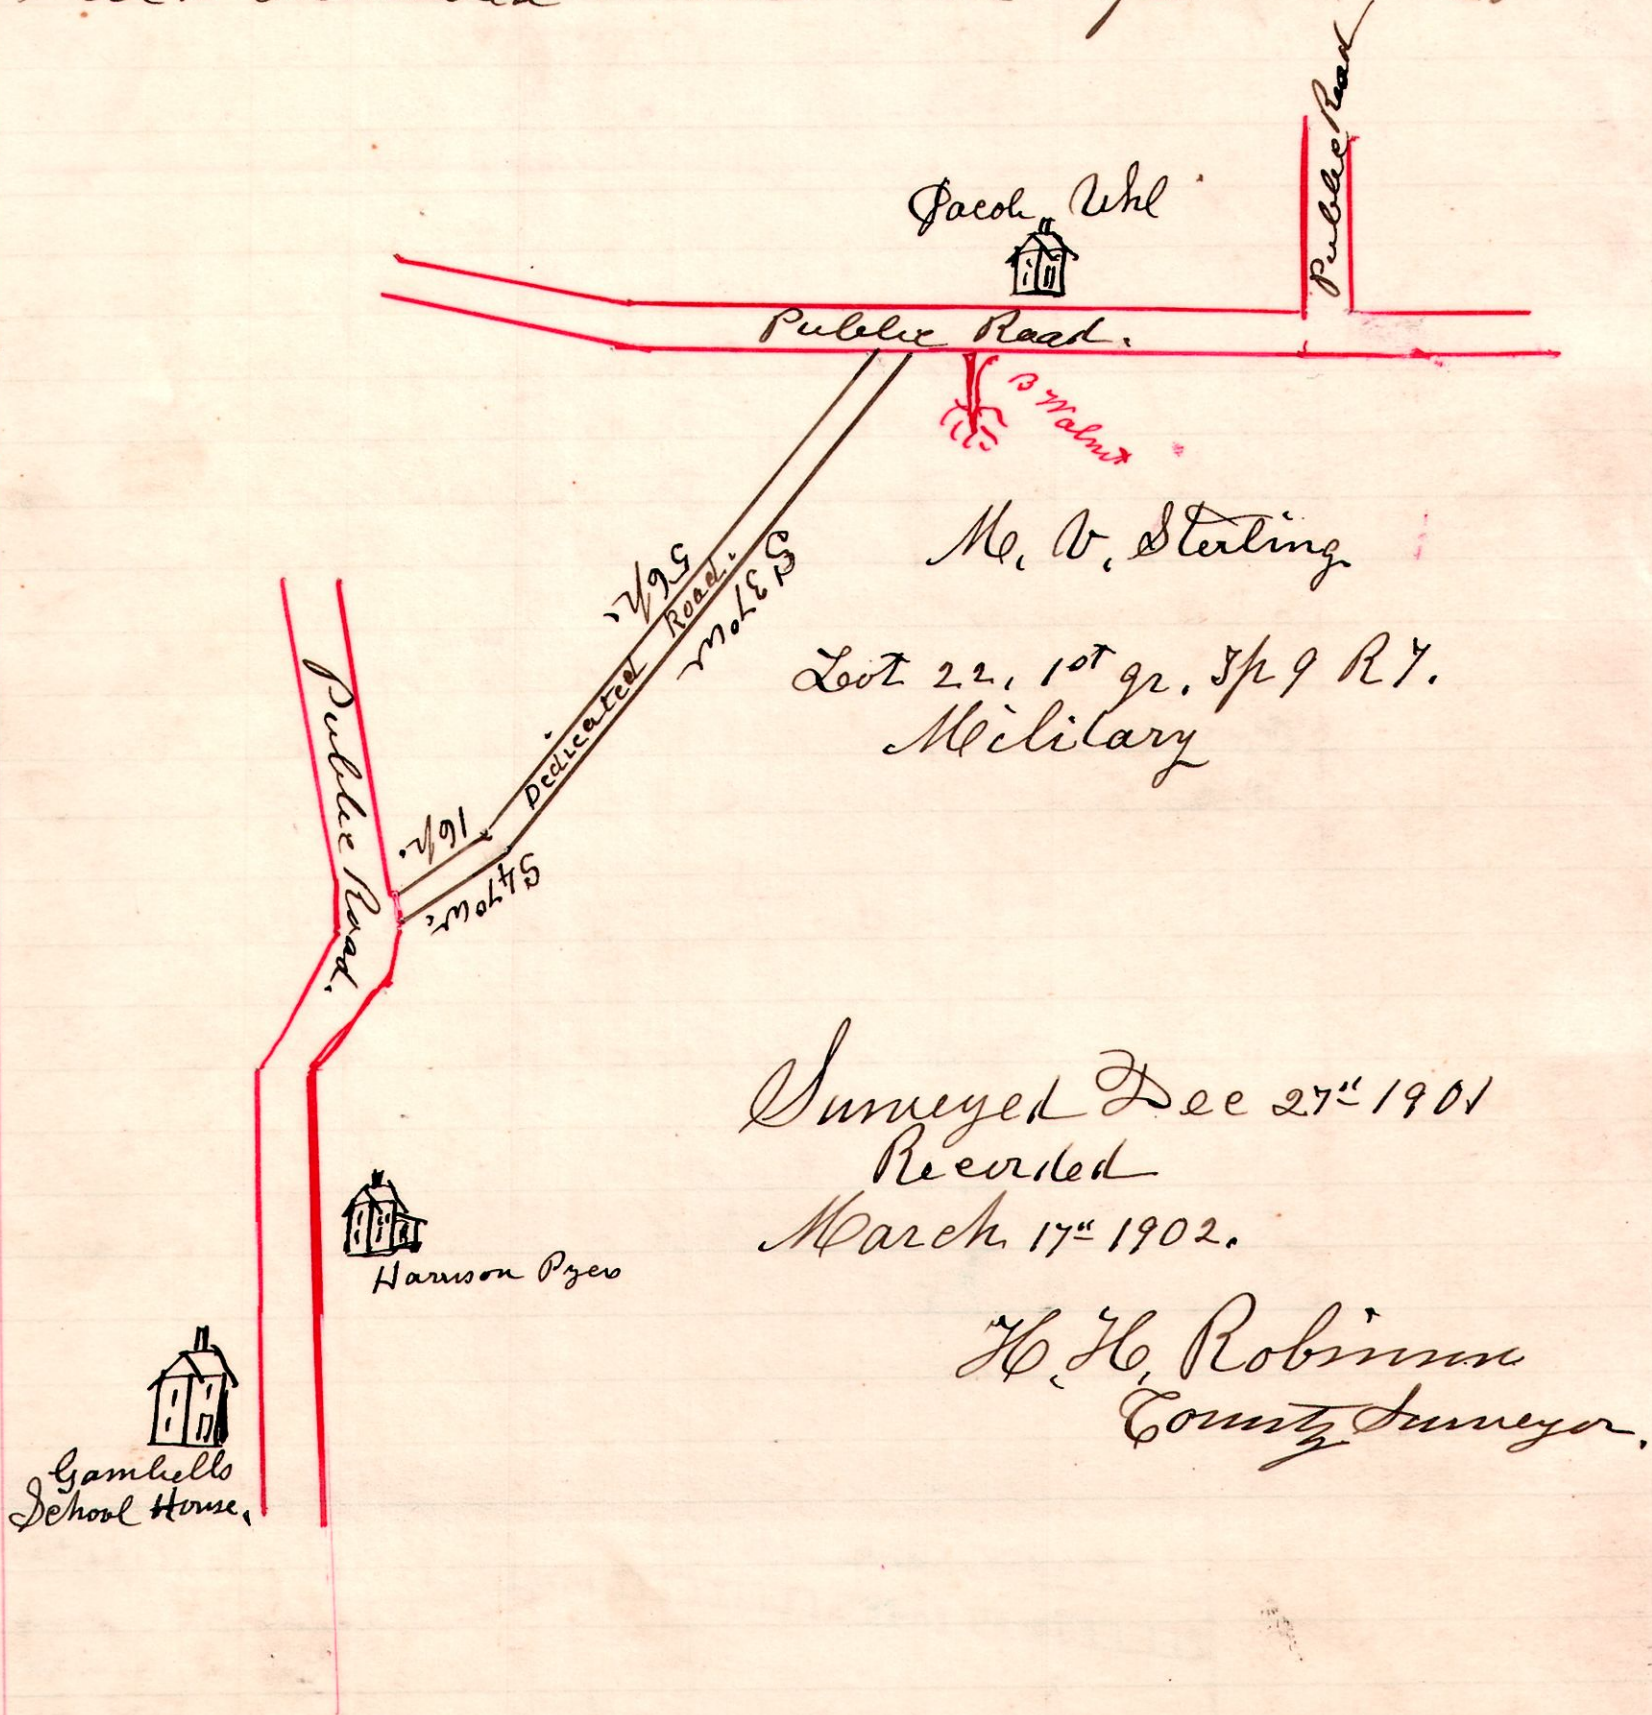 Public Road
Jacob Uhl
Public Road.
B Walnut
M. V. Sterling
56 p.
S 37° W
Dedicated Road.
Lot 22, 1st qr. Tp 9 R 7.
Military
Public Road.
16 p.
S 47° W.
Surveyed Dec 27" 1901
Recorded
March 17" 1902.
Harrison
H. H. Robinson
County Surveyor.
Gambells
School House.